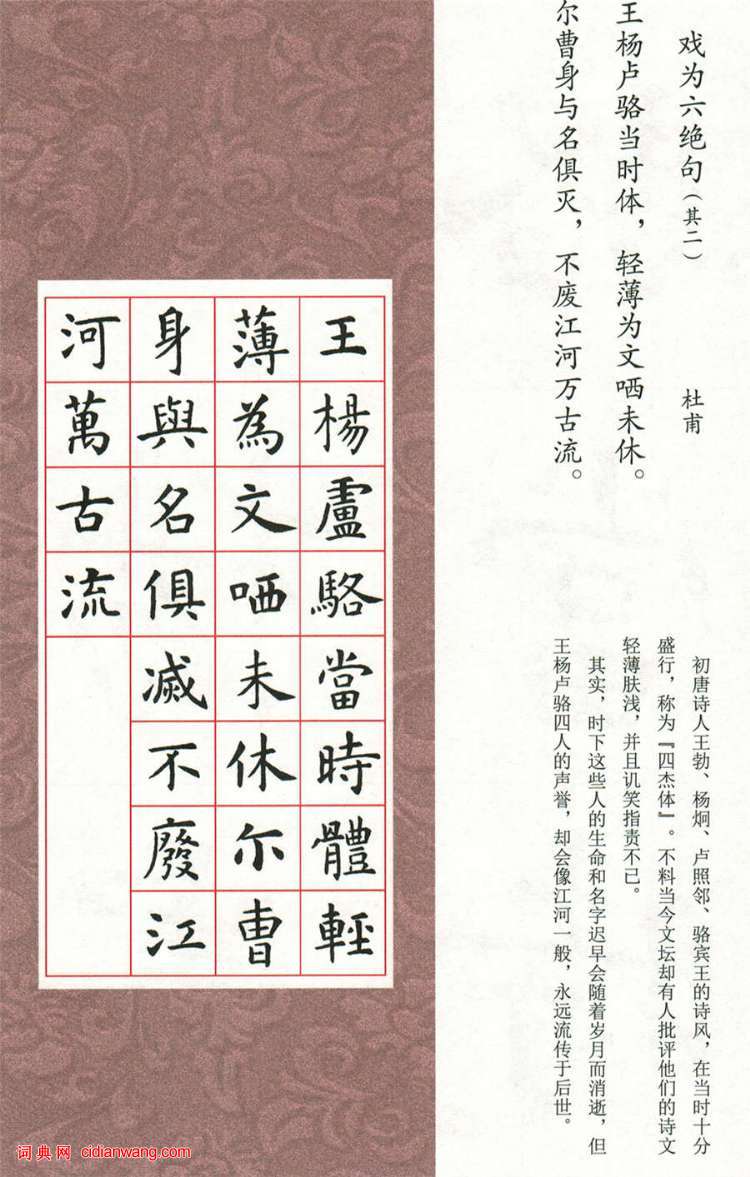 戏为六绝句（其二）
杜甫
王杨卢骆当时体，轻薄为文哂未休。
尔曹身与名俱灭，不废江河万古流。
初唐诗人王勃、杨炯、卢照邻、骆宾王的诗风，在当时十分
盛行，称为『四杰体』。不料当今文坛却有人批评他们的诗文
轻薄肤浅，并且讥笑指责不已。
其实，时下这些人的生命和名字迟早会随着岁月而消逝，但
王杨卢骆四人的声誉，却会像江河一般，永远流传于后世。
王楊盧駱當時體輕
薄為文哂未休尔曹
身與名俱滅不廢江
河萬古流
词典网 cidianwang.com